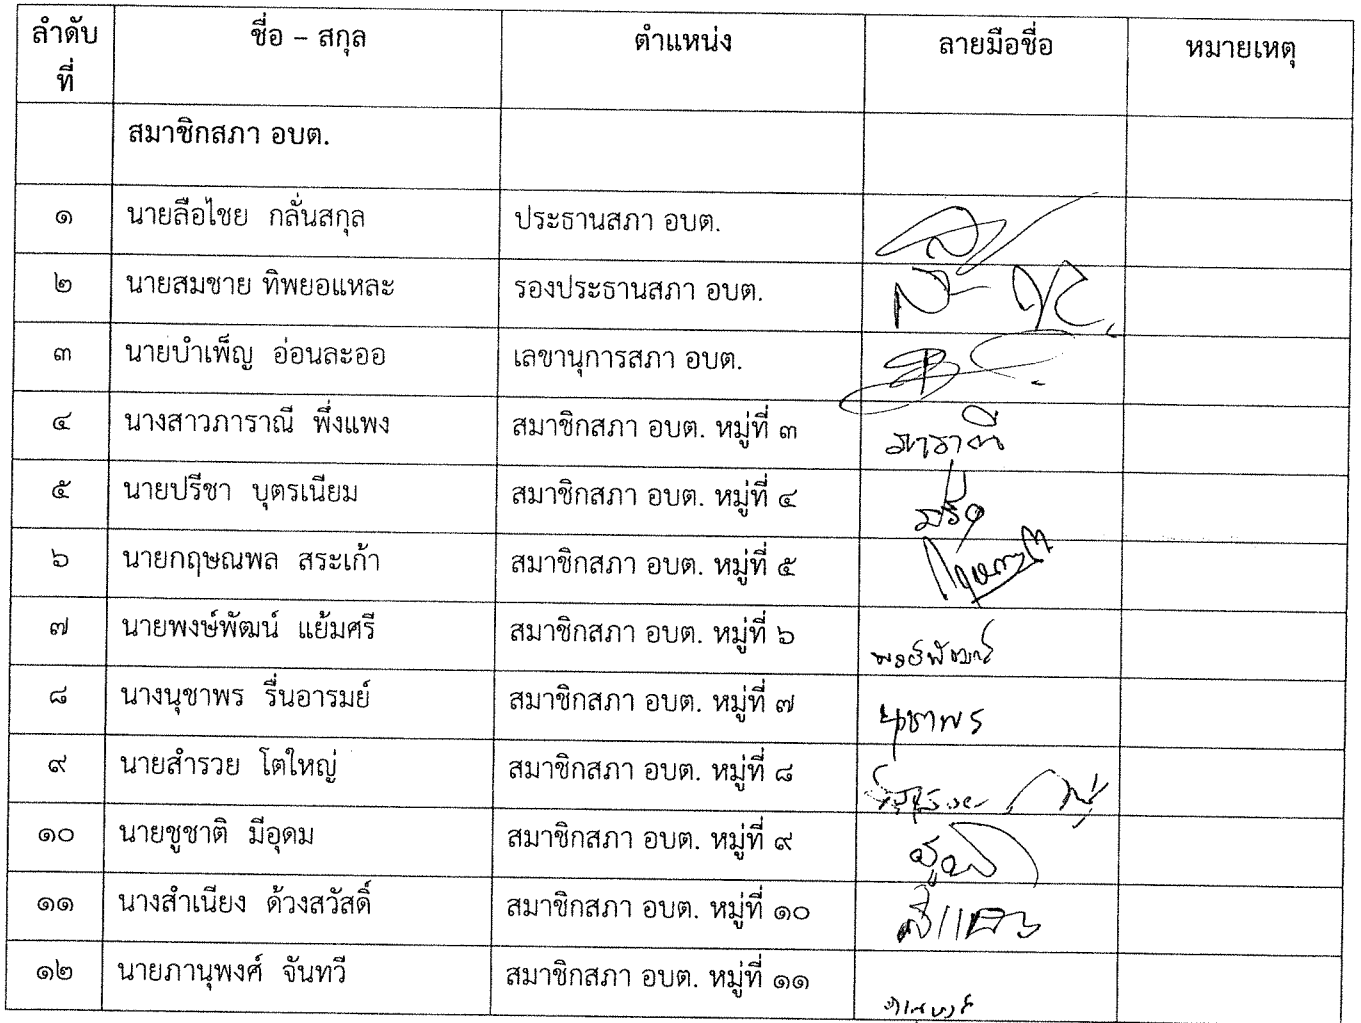 ลำดับที่ ชื่อ – สกุล ตำแหน่ง ลายมือชื่อ หมายเหตุ
สมาชิกสภา อบต.
๑ นายลือไชย กลั่นสกุล ประธานสภา อบต.
๒ นายสมชาย ทิพยอแหละ รองประธานสภา อบต.
๓ นายบำเพ็ญ อ่อนละออ เลขานุการสภา อบต.
๔ นางสาวภาราณี พึ่งแพง สมาชิกสภา อบต. หมู่ที่ ๓ ภาราณี
๕ นายปรีชา บุตรเนียม สมาชิกสภา อบต. หมู่ที่ ๔
๖ นายกฤษณพล สระเก้า สมาชิกสภา อบต. หมู่ที่ ๕
๗ นายพงษ์พัฒน์ แย้มศรี สมาชิกสภา อบต. หมู่ที่ ๖ พงษ์พัฒน์
๘ นางนุชาพร รื่นอารมย์ สมาชิกสภา อบต. หมู่ที่ ๗ นุชาพร
๙ นายสำรวย โตใหญ่ สมาชิกสภา อบต. หมู่ที่ ๘
๑๐ นายชูชาติ มีอุดม สมาชิกสภา อบต. หมู่ที่ ๙
๑๑ นางสำเนียง ด้วงสวัสดิ์ สมาชิกสภา อบต. หมู่ที่ ๑๐
๑๒ นายภานุพงศ์ จันทวี สมาชิกสภา อบต. หมู่ที่ ๑๑